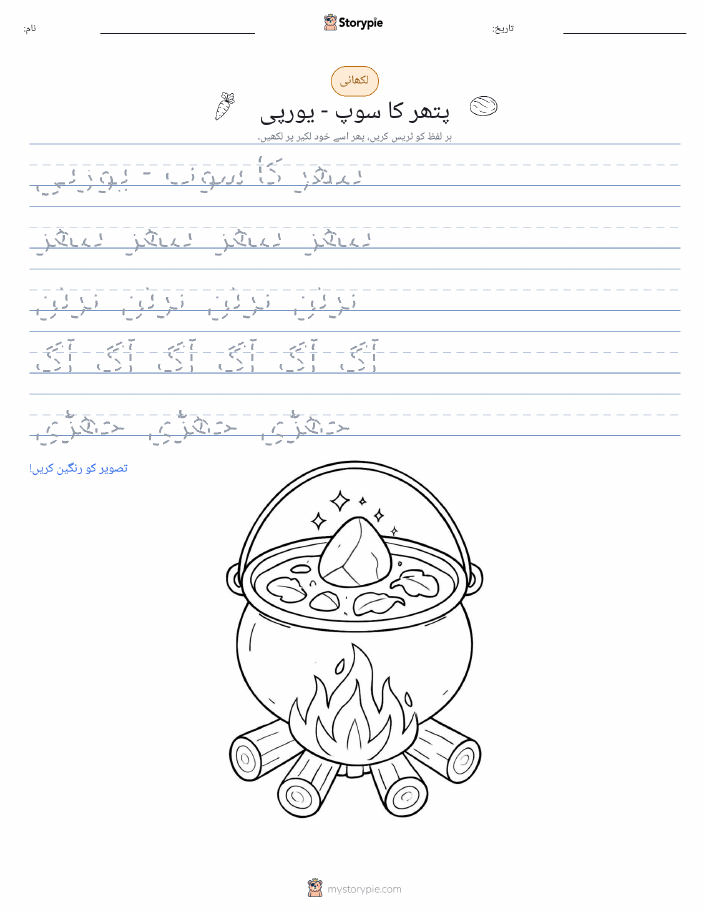 نام:
Storypie
تاریخ:
لکھائی
پتھر کا سوپ - یورپی
ہر لفظ کو ٹریس کریں، پھر اسے خود لکیر پر لکھیں۔
پتھر کا سوپ - یورپی
پتھر پتھر پتھر پتھر
برتن برتن برتن برتن
آگ آگ آگ آگ آگ آگ
چھڑی چھڑی چھڑی
تصویر کو رنگین کریں!
mystorypie.com